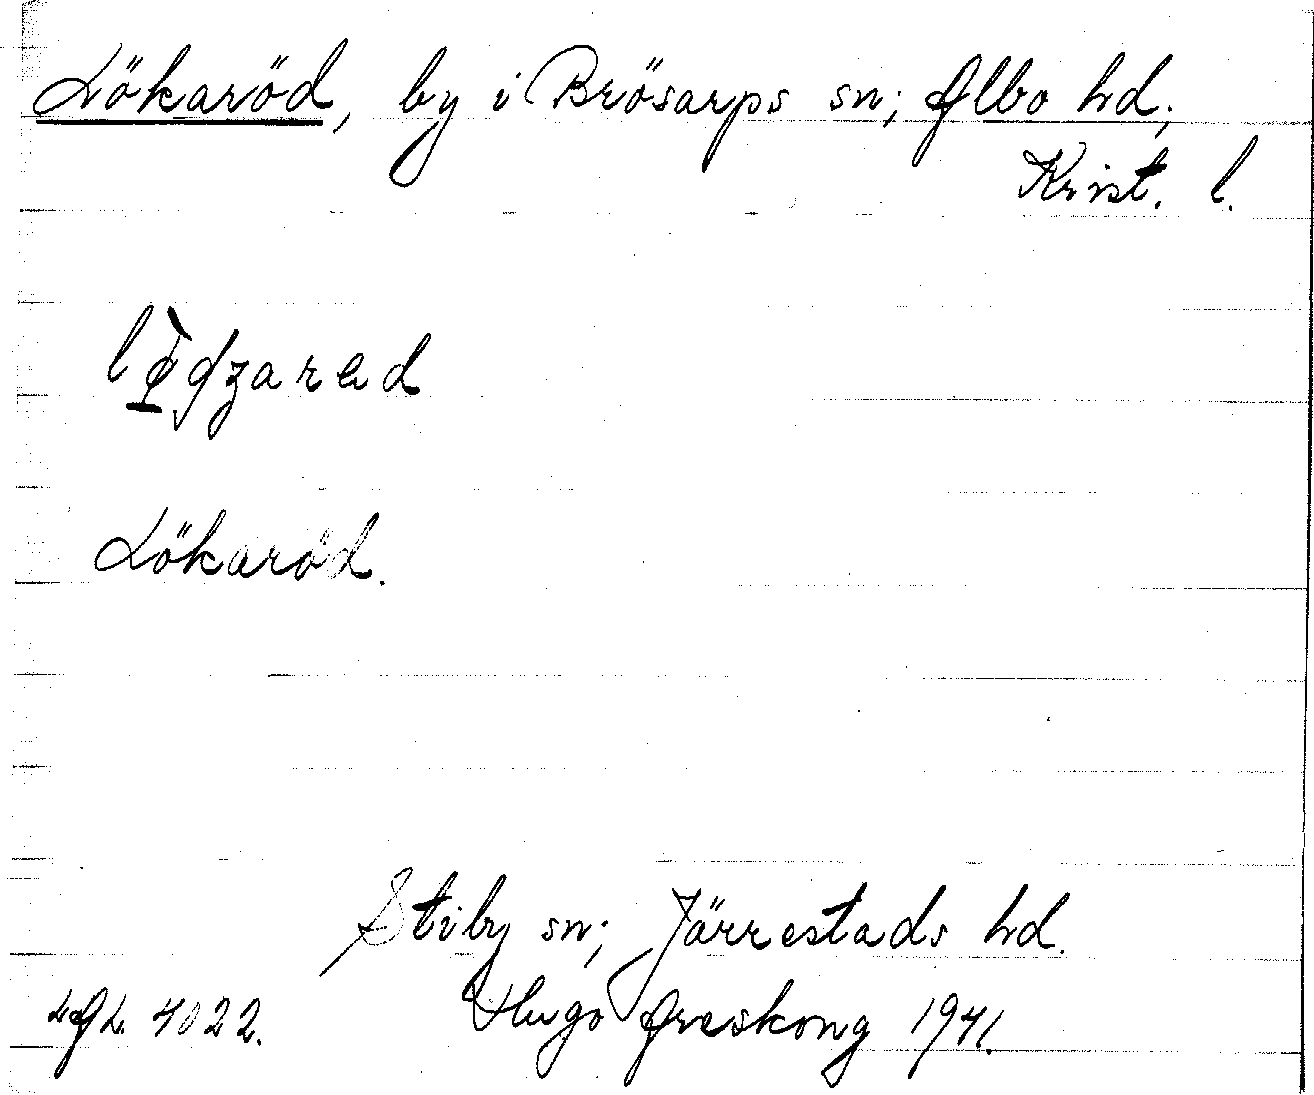 Lökaröd, by i Brösarps sn; Albo hd;
Krist. l.
Lökaröd.
Stiby sn; Järrestads hd.
4022. Hugo Areskoug 1941.